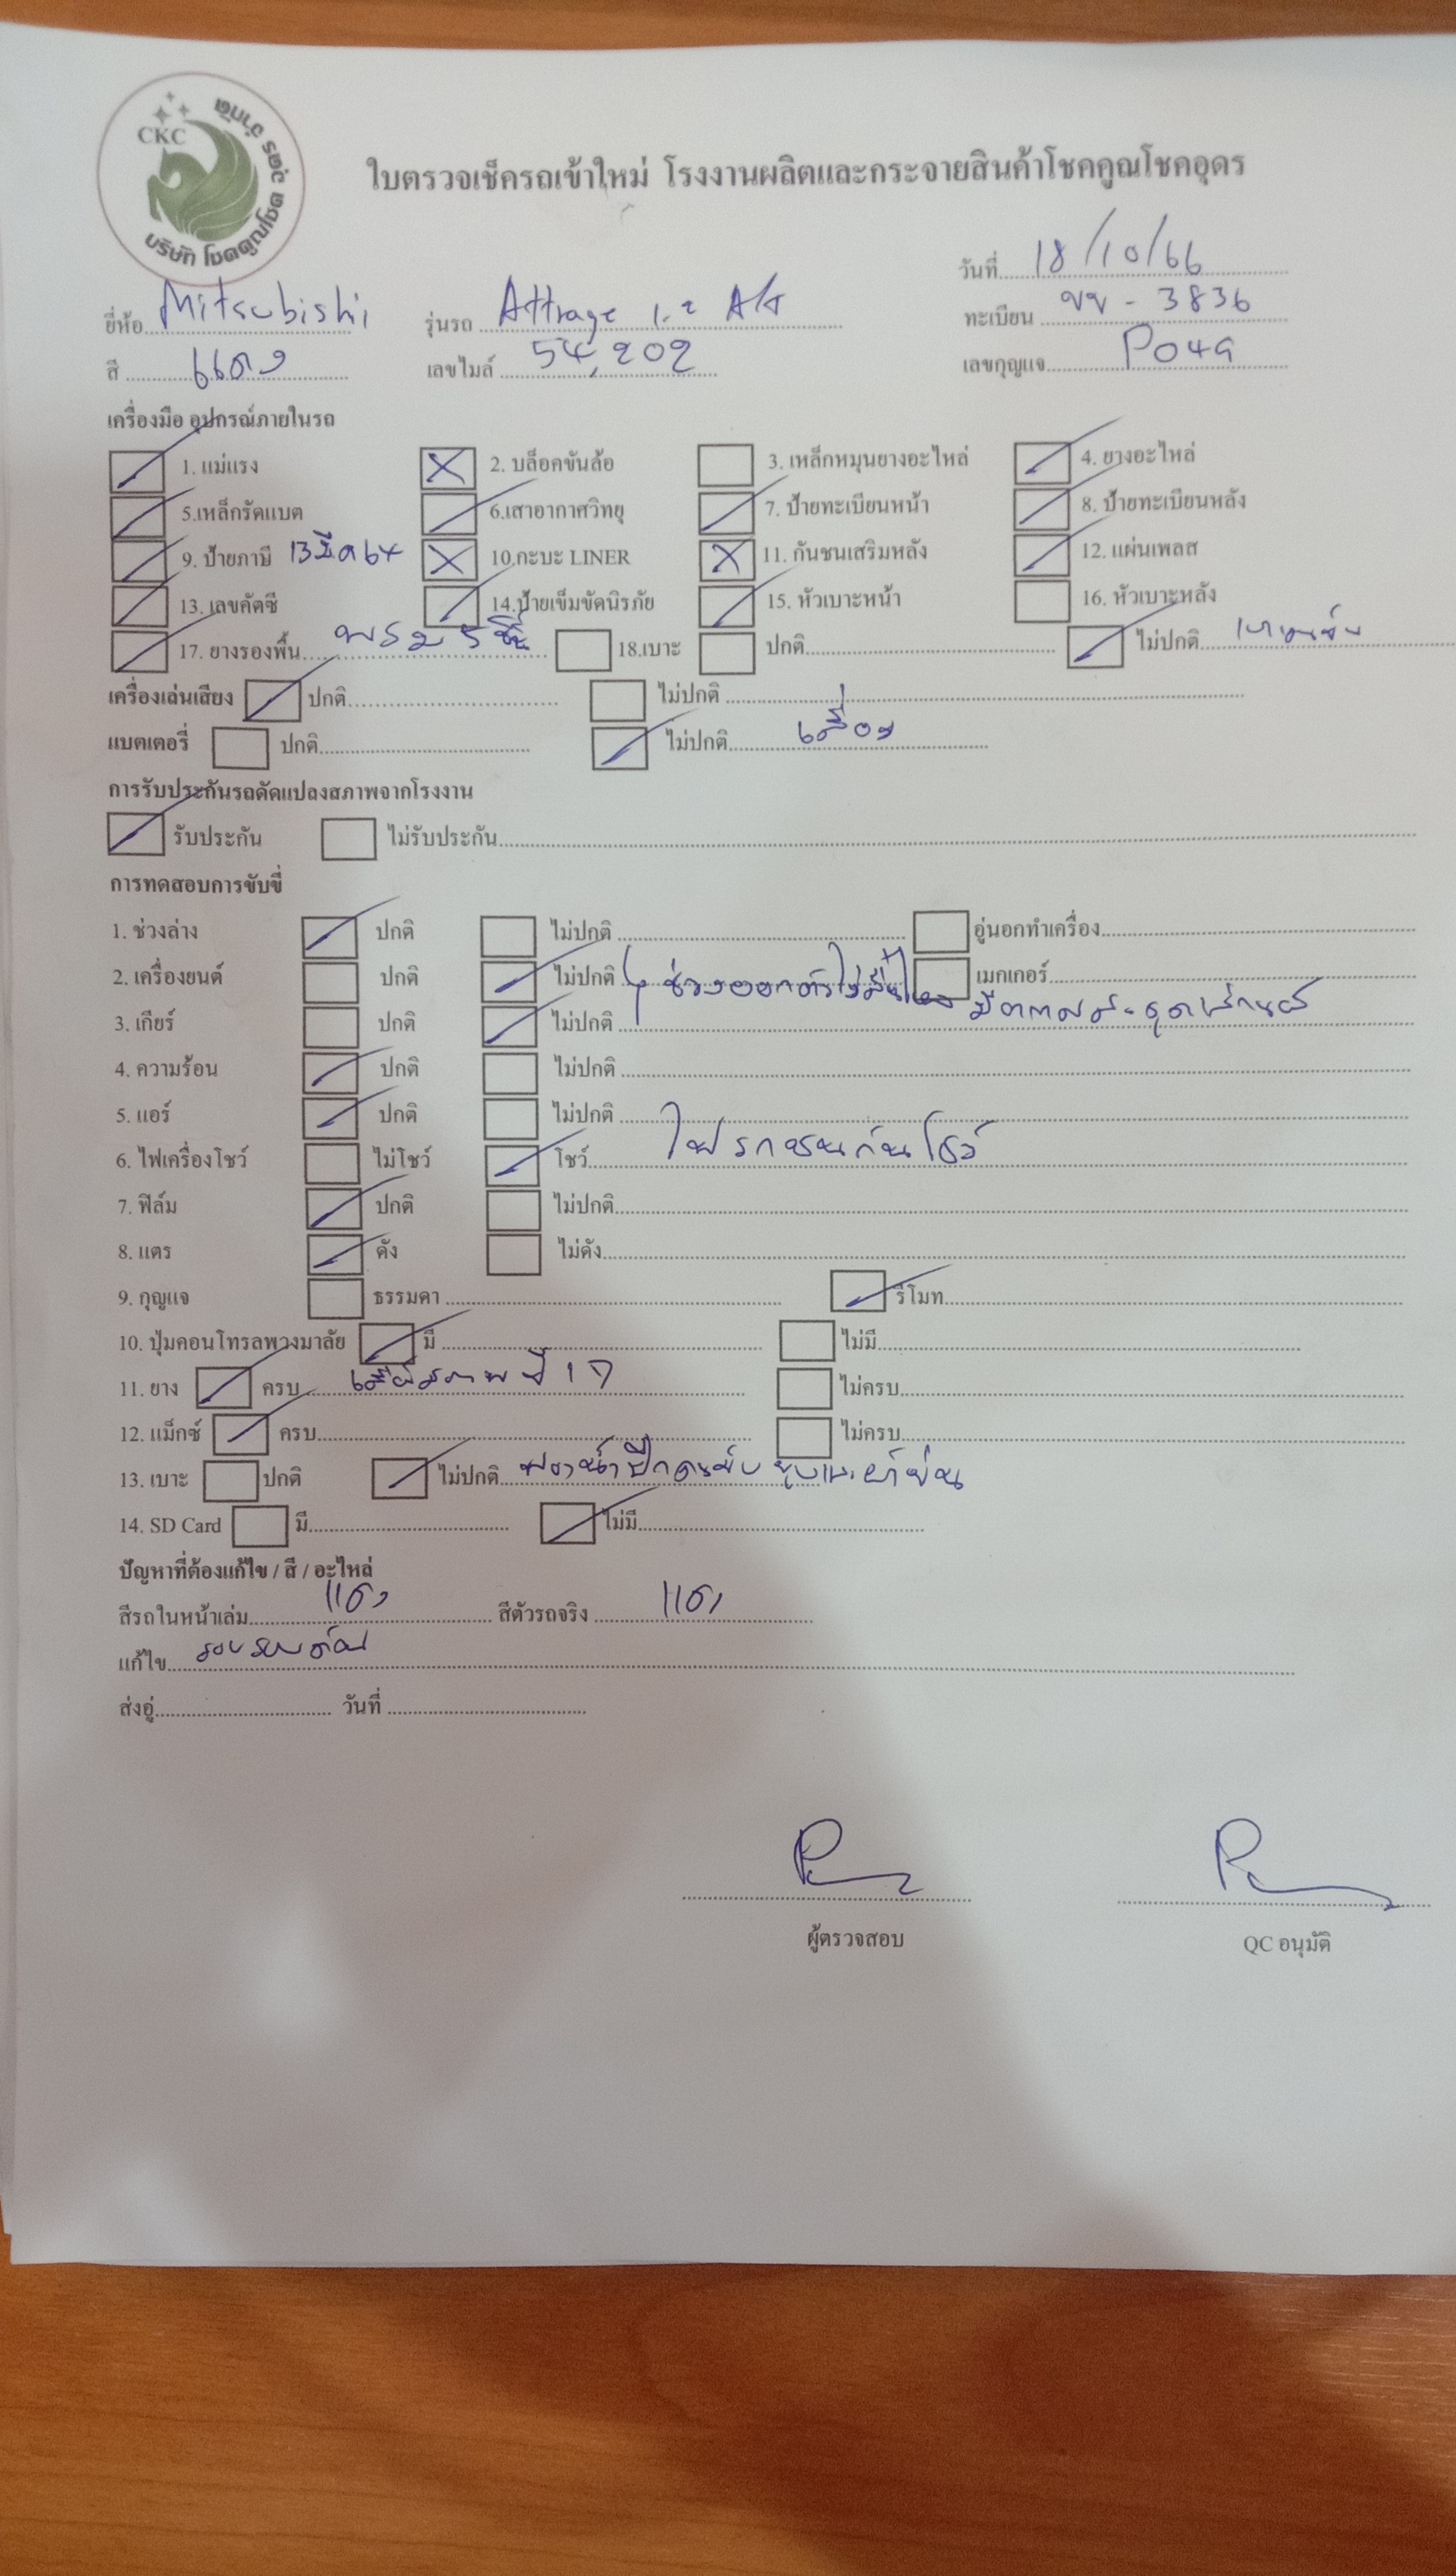 CKC
บริษัท โชคคูณโชค จำกัด
ใบตรวจเช็ครถเข้าใหม่ โรงงานผลิตและกระจายสินค้าโชคคูณโชคอุดร
วันที่ 18/10/66
ยี่ห้อ Mitsubishi รุ่นรถ Attrage 1.2 A/T ทะเบียน ขข - 3836
สี แดง เลขไมล์ 54,202 เลขกุญแจ P049
เครื่องมือ อุปกรณ์ภายในรถ
1. แม่แรง 2. บล็อคขันล้อ 3. เหล็กหมุนยางอะไหล่ 4. ยางอะไหล่
5.เหล็กรัดแบต 6.เสาอากาศวิทยุ 7. ป้ายทะเบียนหน้า 8. ป้ายทะเบียนหลัง
9. ป้ายภาษี 13 มีค 67 10.กะบะ LINER 11. กันชนเสริมหลัง 12. แผ่นเพลส
13. เลขคัตซี 14.ป้ายเข็มขัดนิรภัย 15. หัวเบาะหน้า 16. หัวเบาะหลัง
17. ยางรองพื้น พรม 5 ชิ้น 18.เบาะ ปกติ ไม่ปกติ
เครื่องเล่นเสียง ปกติ ไม่ปกติ
แบตเตอรี่ ปกติ ไม่ปกติ เสื่อม
การรับประกันรถดัดแปลงสภาพจากโรงงาน
รับประกัน ไม่รับประกัน
การทดสอบการขับขี่
1. ช่วงล่าง ปกติ ไม่ปกติ อู่นอกทำเครื่อง
2. เครื่องยนต์ ปกติ ไม่ปกติ ช่วงออกตัวไม่ลื่นไหล เมกเกอร์
3. เกียร์ ปกติ ไม่ปกติ มีอาการสะดุด
4. ความร้อน ปกติ ไม่ปกติ
5. แอร์ ปกติ ไม่ปกติ
6. ไฟเครื่องโชว์ ไม่โชว์ โชว์ ไฟรถชนก้นโชว์
7. ฟิล์ม ปกติ ไม่ปกติ
8. แตร ดัง ไม่ดัง
9. กุญแจ ธรรมดา รีโมท
10. ปุ่มคอนโทรลพวงมาลัย มี ไม่มี
11. ยาง ครบ เสื่อมสภาพ ปี 17 ไม่ครบ
12. แม็กซ์ ครบ ไม่ครบ
13. เบาะ ปกติ ไม่ปกติ
14. SD Card มี ไม่มี
ปัญหาที่ต้องแก้ไข / สี / อะไหล่
สีรถในหน้าเล่ม แดง สีตัวรถจริง แดง
แก้ไข รอบคัน
ส่งอู่ วันที่
ผู้ตรวจสอบ QC อนุมัติ